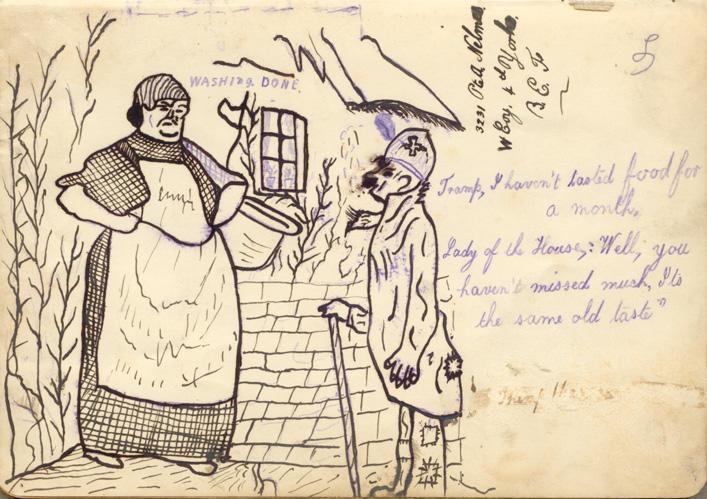 WASHING. DONE.
3231 Pte A Nelmes
W Coy. 4th Yorks.
B. E. F.
Tramp, I haven't tasted food for
a month,
Lady of the House,: Well, you
haven't missed much, Its
the same old taste"